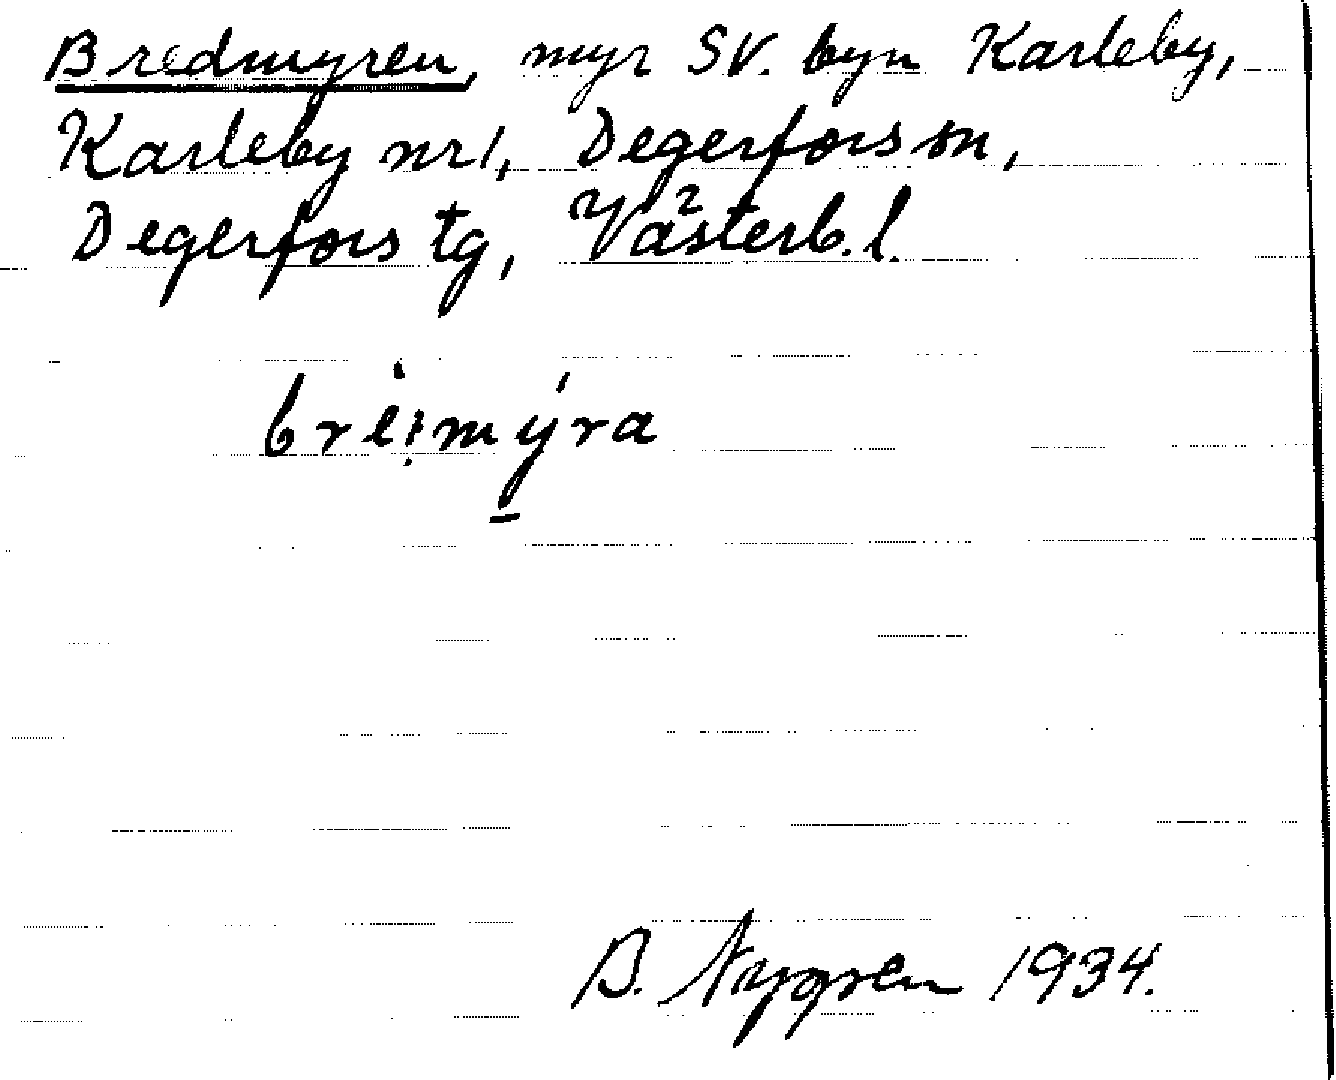 Bredmyren, myr SV. byn Karleby,
Karleby nr 1, Degerfors sn,
Degerfors tg, Västerb. l.
bre̍i̩mýra
B. Nygren 1934.